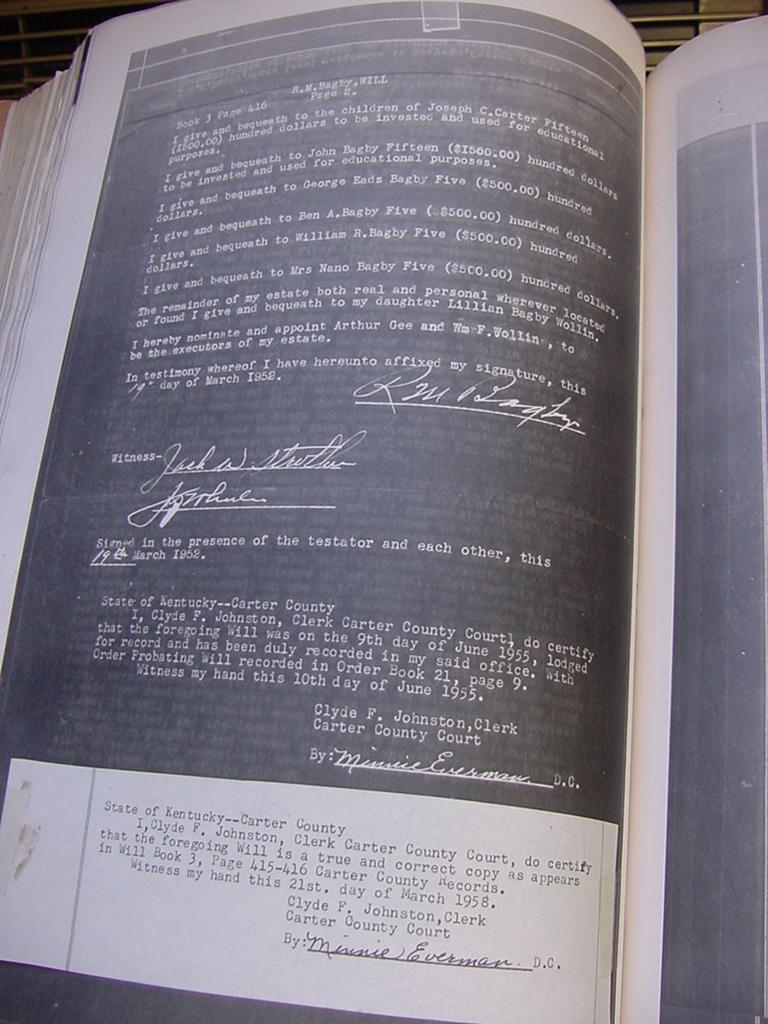 R.M.Bagby,WILL
Page 2.
Book 3 Page 416
I give and bequeath to the children of Joseph C.Carter Fifteen
(I500.00) hundred dollars to be invested and used for educational
purposes.
I give and bequeath to John Bagby Fifteen ($I500.00) hundred dollars
to be invested and used for educational purposes.
I give and bequeath to George Eads Bagby Five ($500.00) hundred
dollars.
I give and bequeath to Ben A.Bagby Five ( $500.00) hundred dollars.
I give and bequeath to William R.Bagby Five ($500.00) hundred
dollars.
I give and bequeath to Mrs Nano Bagby Five ($500.00) hundred dollars.
The remainder of my estate both real and personal wherever located
or found I give and bequeath to my daughter Lillian Bagby Wollin.
I hereby nominate and appoint Arthur Gee and Wm F.Wollin , to
be the executors of my estate.
In testimony whereof I have hereunto affixed my signature, this
19th day of March I952.
R M Bagby
Witness- Jack W Strother
Signed in the presence of the testator and each other, this
19th March I952.
State of Kentucky--Carter County
I, Clyde F. Johnston, Clerk Carter County Court, do certify
that the foregoing Will was on the 9th day of June 1955, lodged
for record and has been duly recorded in my said office. With
Order Probating Will recorded in Order Book 21, page 9.
Witness my hand this 10th day of June 1955.
Clyde F. Johnston,Clerk
Carter County Court
By: Minnie Everman D.C.
State of Kentucky--Carter County
I,Clyde F. Johnston, Clerk Carter County Court, do certify
that the foregoing Will is a true and correct copy as appears
in Will Book 3, Page 415-416 Carter County Records.
Witness my hand this 21st. day of March 1958.
Clyde F. Johnston,Clerk
Carter County Court
By: Minnie Everman. D.C.